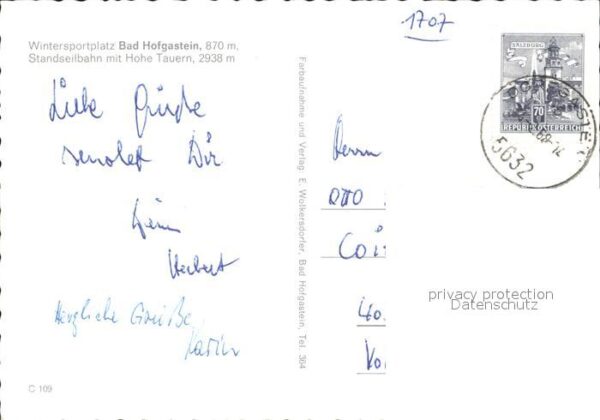 1707
Wintersportplatz Bad Hofgastein, 870 m,
Standseilbahn mit Hohe Tauern, 2938 m
Liebe Grüße
sendet Dir
Dein
Herbert
Herzliche Grüße
Karin
C 109
Farbaufnahme und Verlag: E. Wolkersdorfer, Bad Hofgastein, Tel. 364
SALZBURG
70
REPUBLIK ÖSTERREICH
5632
Herrn
OTTO
privacy protection
Datenschutz